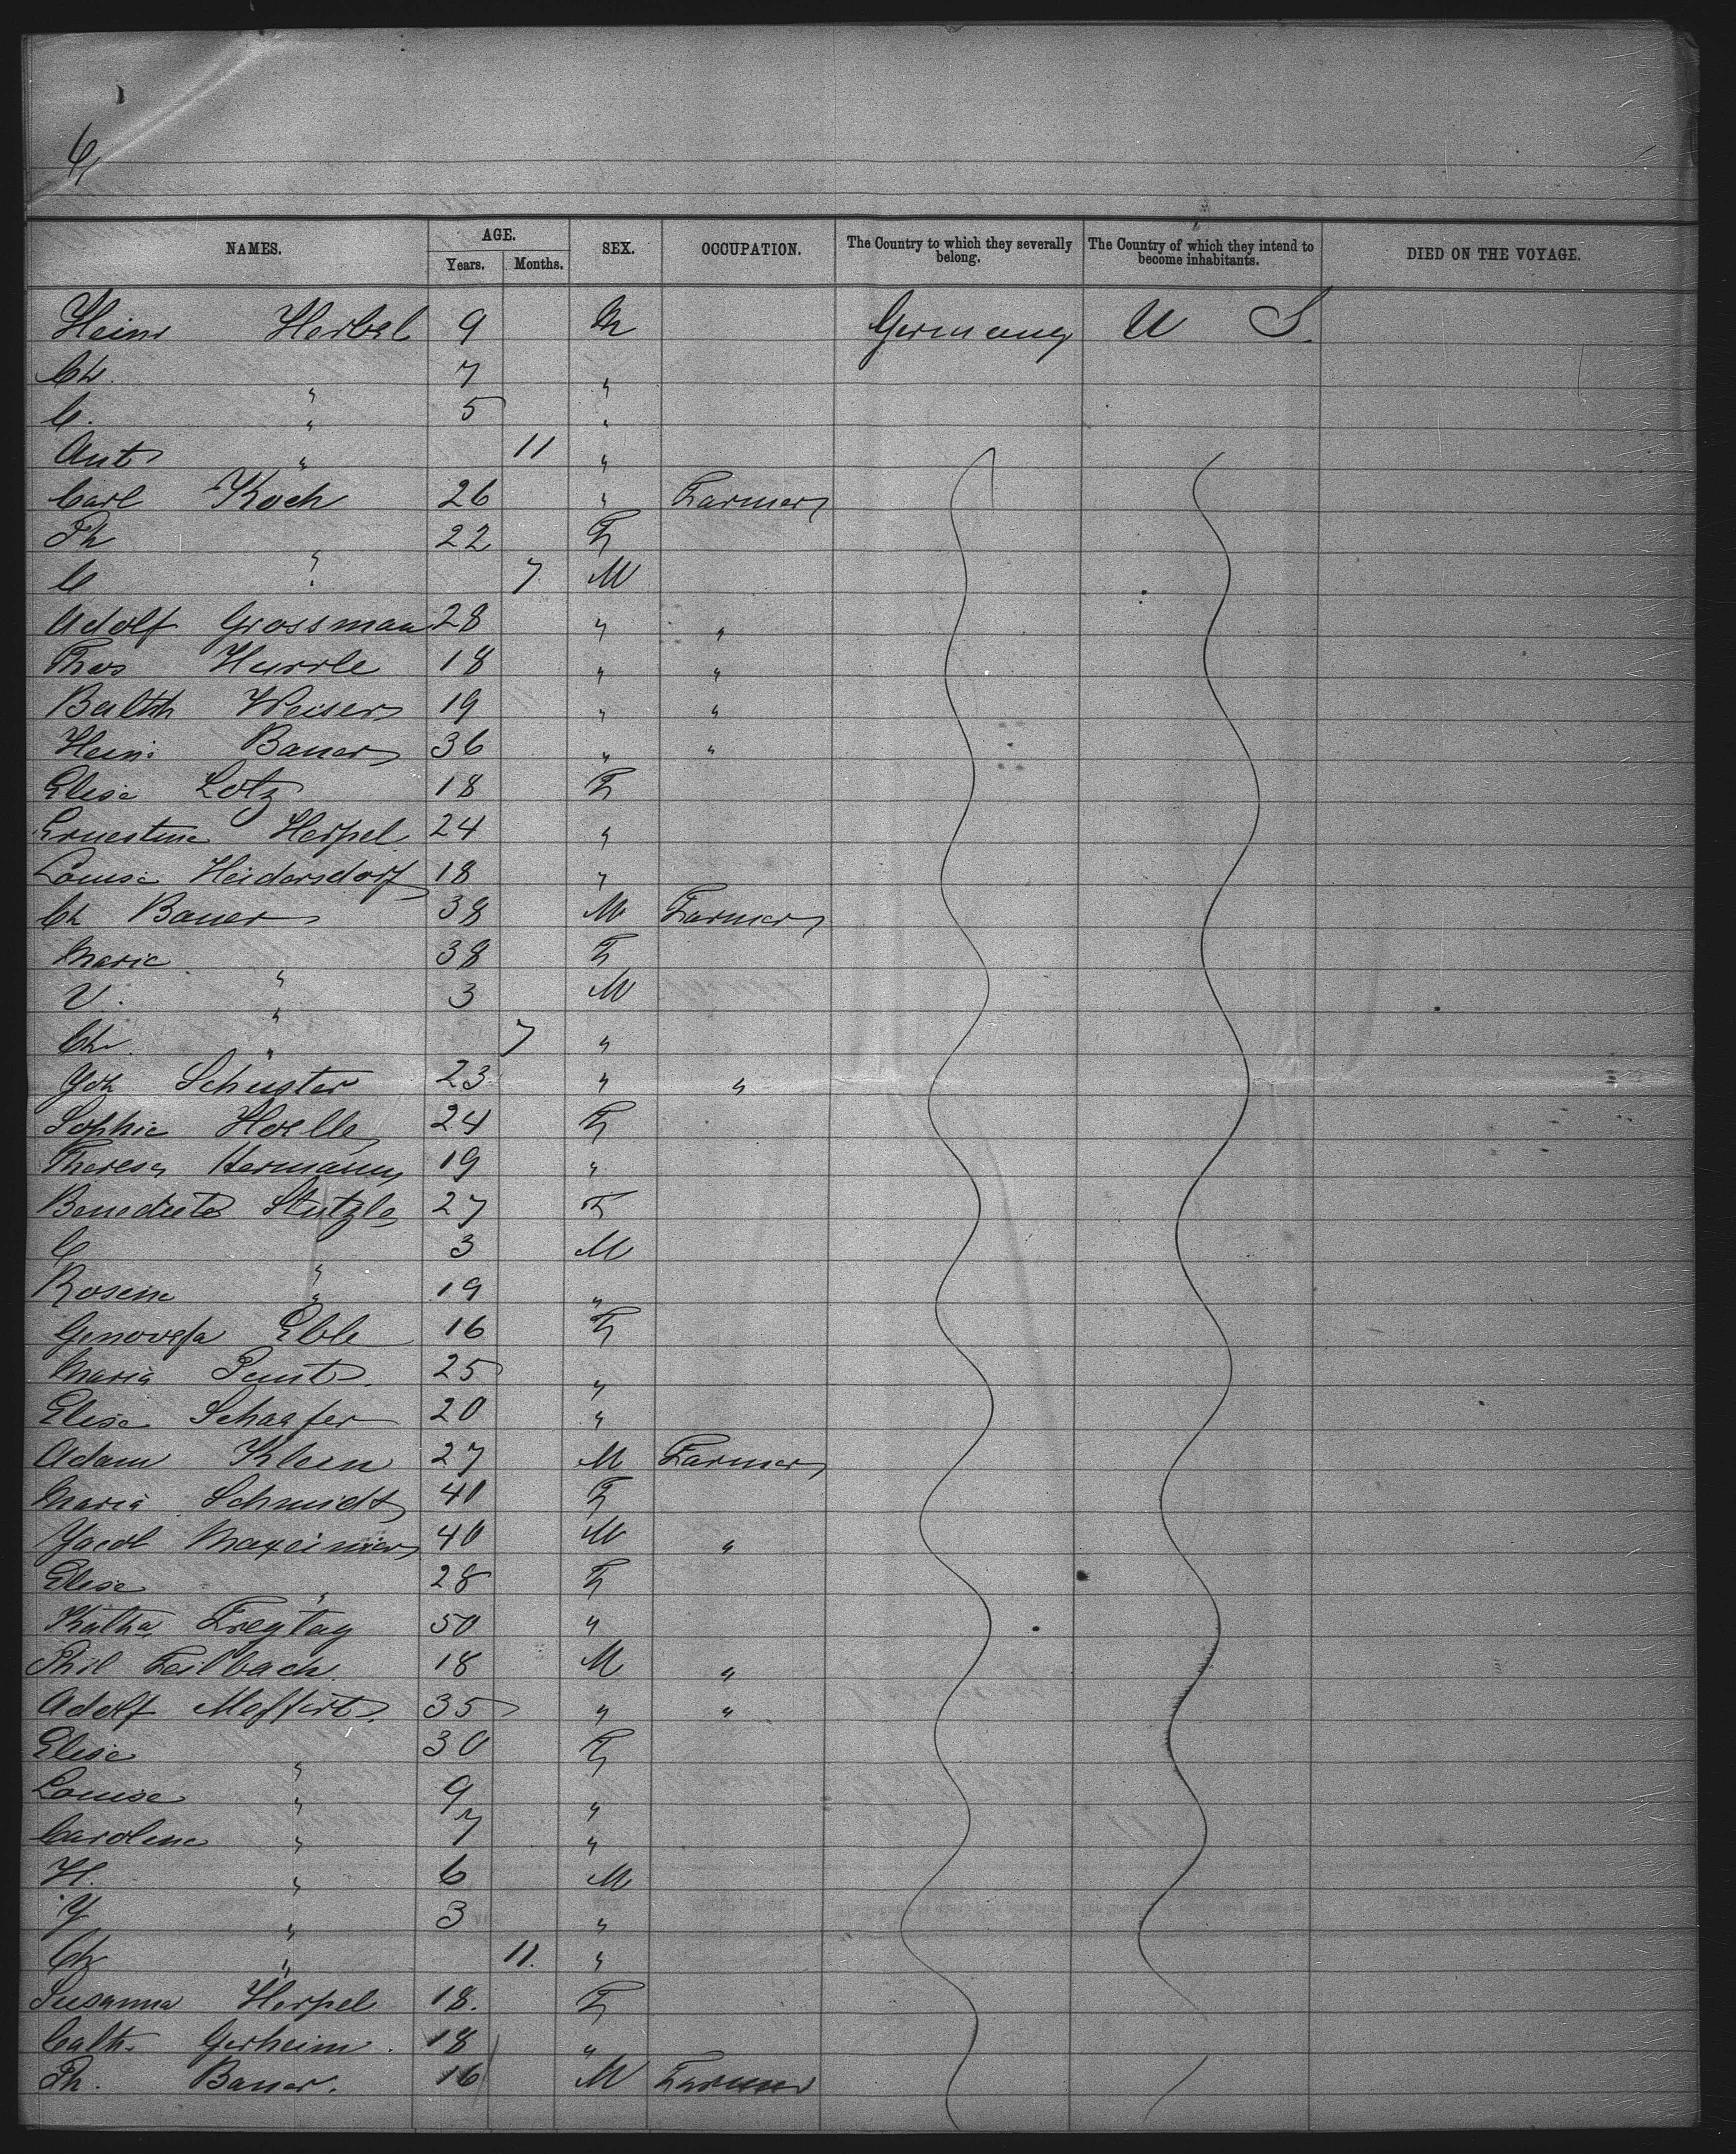 6,
NAMES. AGE. SEX. OCCUPATION. The Country to which they severally belong. The Country of which they intend to become inhabitants. DIED ON THE VOYAGE.
Years. Months.
Heinr Herbel 9 M Germany U S.
Ch. " 7 "
C. " 5 "
Ant " 11 "
Carl Koch 26 " Farmer
Ph " 22 F
C " 7 M
Adolf Grossman 28 " "
Thos Hurrle 18 " "
Balth Weiser 19 " "
Hein: Bauer 36 " "
Elise Lotz 18 F
Ernestine Herpel 24 "
Louise Heidersdorf 18 "
Ch Bauer 38 M Farmer
Marie " 38 F
V. " 3 M
Ch. " 7 "
Joh Schuster 23 " "
Sophie Hoelle 24 F
Theresa Hermann 19 "
Benedicta Stutzle 27 F
C " 3 M
Rosine " 19 "
Genovefa Eble 16 F
Maria 25 "
Elise Schaafer 20 "
Adam Klein 27 M Farmer
Maria Schmidt 41 F
Jacob 40 M "
Elise " 28 F
Katha Freytag 50 "
Phil Feilbach 18 M "
Adolf Meffert 35 " "
Elise " 30 F
Louise " 9 "
Caroline " 7 "
H. " 6 M
J " 3 "
Ch " 11. "
Susanna Herpel 18. F
Cath. Gerheim. 18 "
Ph. Bauer. 16 M Farmer